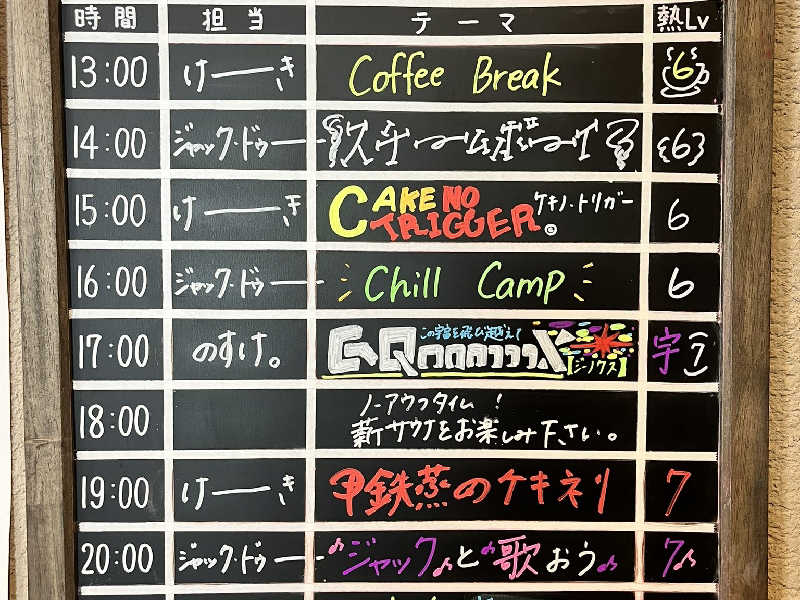 時間 担当 テーマ 熱Lv
13:00 けーき Coffee Break 6
14:00 ジャック・ドゥー {6}
15:00 けーき CAKE NO TRIGGER ケキノ・トリガー 6
16:00 ジャック・ドゥー Chill Camp 6
17:00 のすけ。 この宇宙を飛び越えて GQuuuuuuX 【ジークアクス】 宇
18:00 ノーアウフタイム!
薪サウナをお楽しみ下さい。
19:00 けーき 甲鉄蒸のケキネリ 7
20:00 ジャック・ドゥー ♪ジャック♪と♪歌おう♪ 7♪